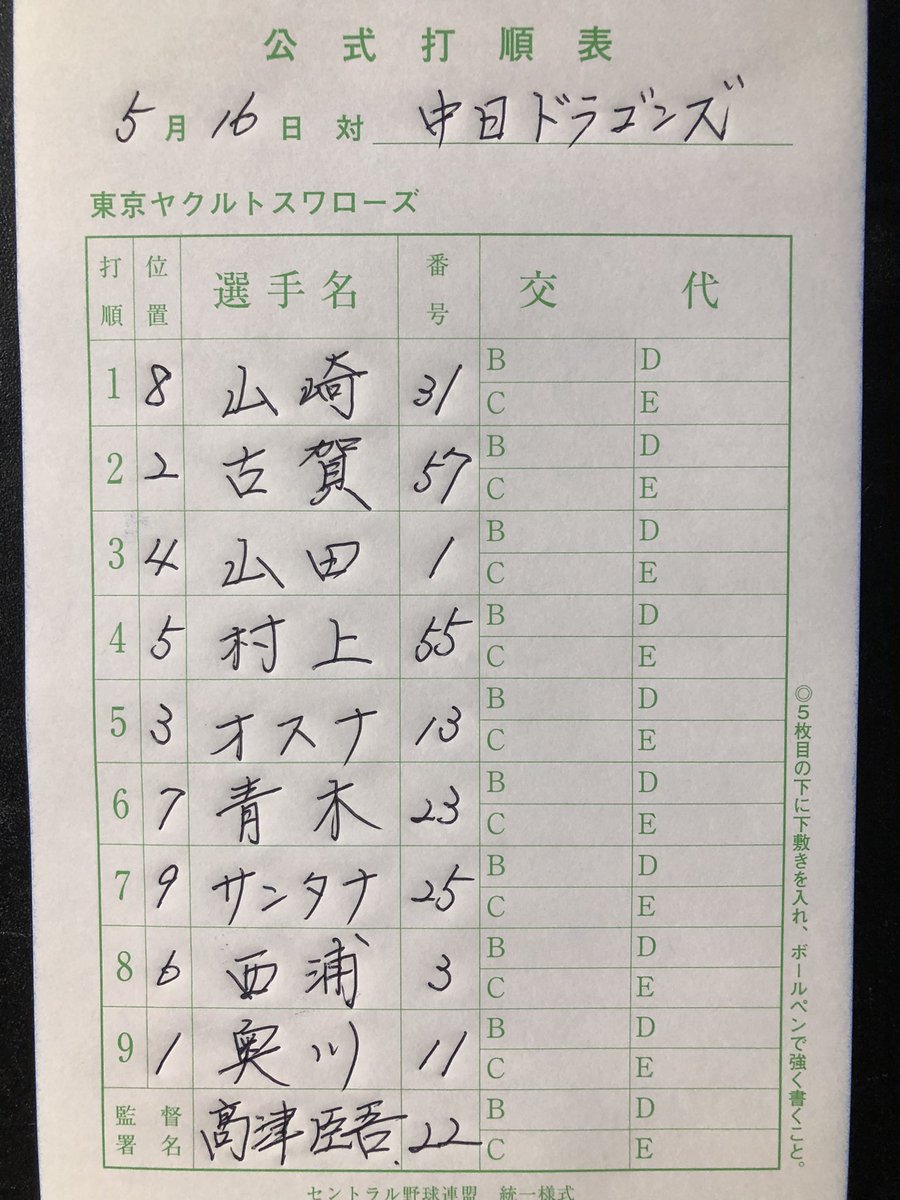 公式打順表
5月16日 対 中日ドラゴンズ
東京ヤクルトスワローズ
打順 位置 選手名 番号 交代
1 8 山崎 31 B D
C E
2 2 古賀 57 B D
C E
3 4 山田 1 B D
C E
4 5 村上 55 B D
C E
5 3 オスナ 13 B D
C E
6 7 青木 23 B D
C E
7 9 サンタナ 25 B D
C E
8 6 西浦 3 B D
C E
9 1 奥川 11 B D
C E
監督署名 髙津臣吾 22 B D
C E
◎5枚目の下に下敷きを入れ、ボールペンで強く書くこと。
セントラル野球連盟 統一様式